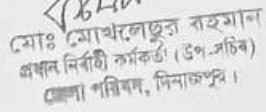 মোঃ মোখলেছুর রহমান
প্রধান নির্বাহী কর্মকর্তা (উপ-সচিব)
জেলা পরিষদ, দিনাজপুর।